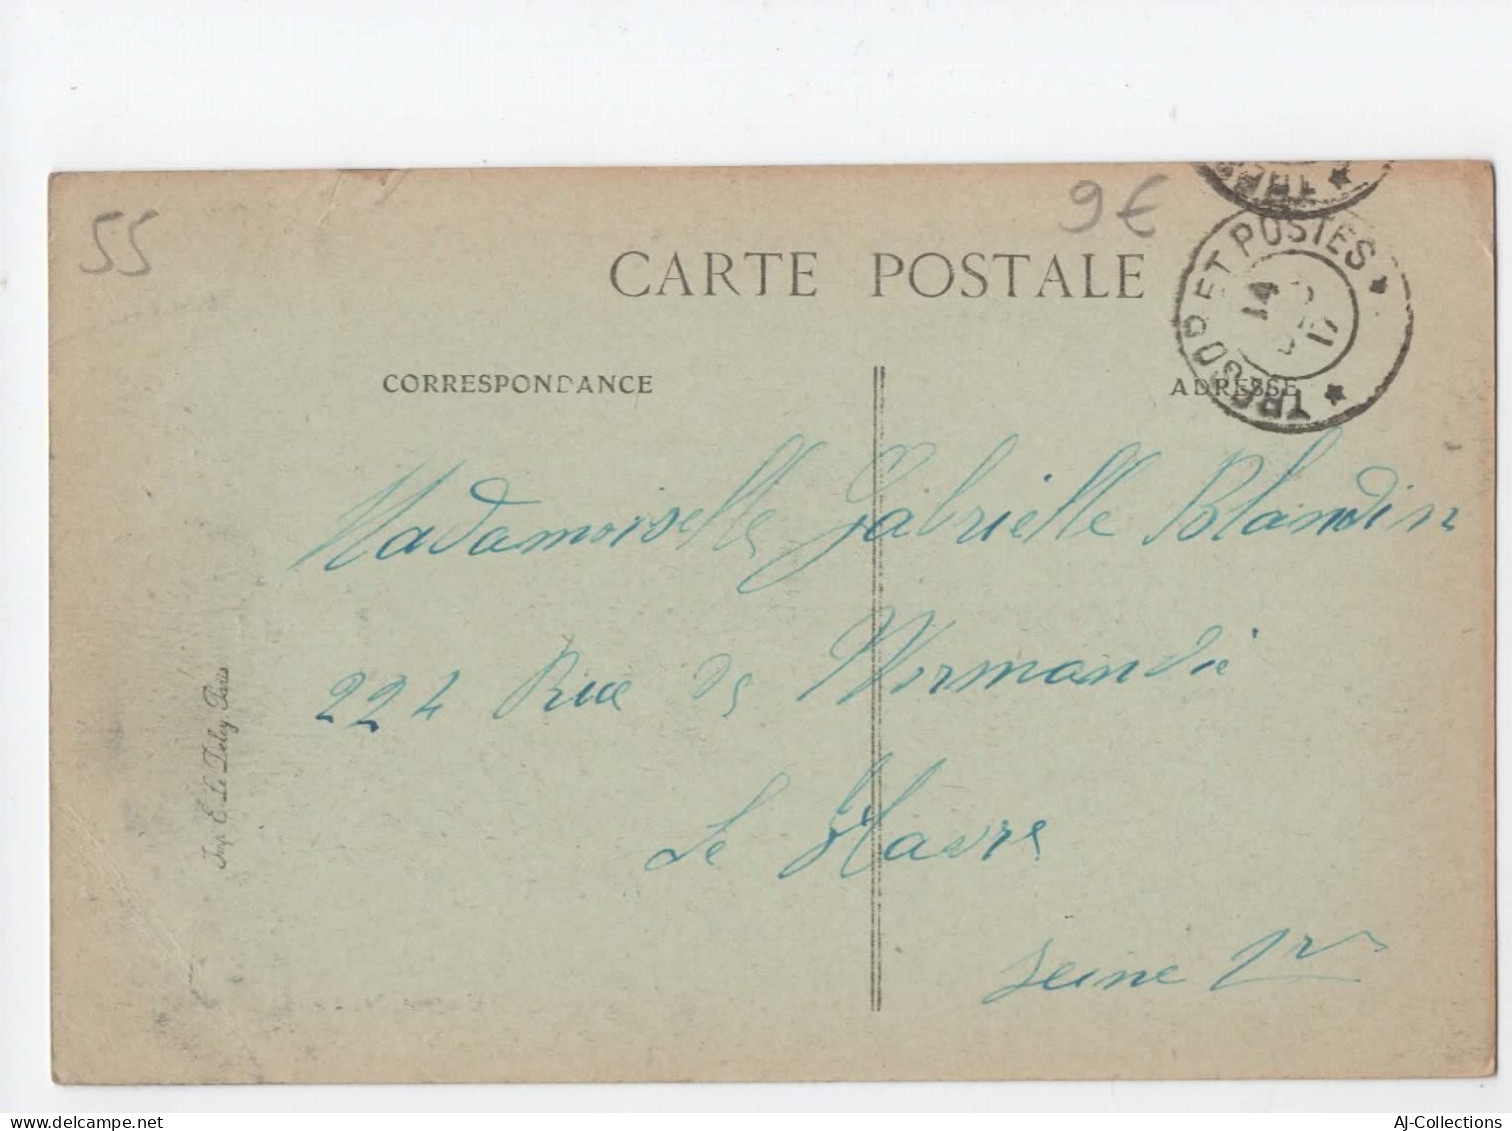 55
9€
TRÉSOR ET POSTES
14
17
CARTE POSTALE
CORRESPONDANCE
ADRESSE
Mademoiselle Gabrielle Blandin
224 Rue de Normandie
Le Havre
Seine Inre
Imp. E. Le Deley Paris
delcampe.net
AJ-Collections